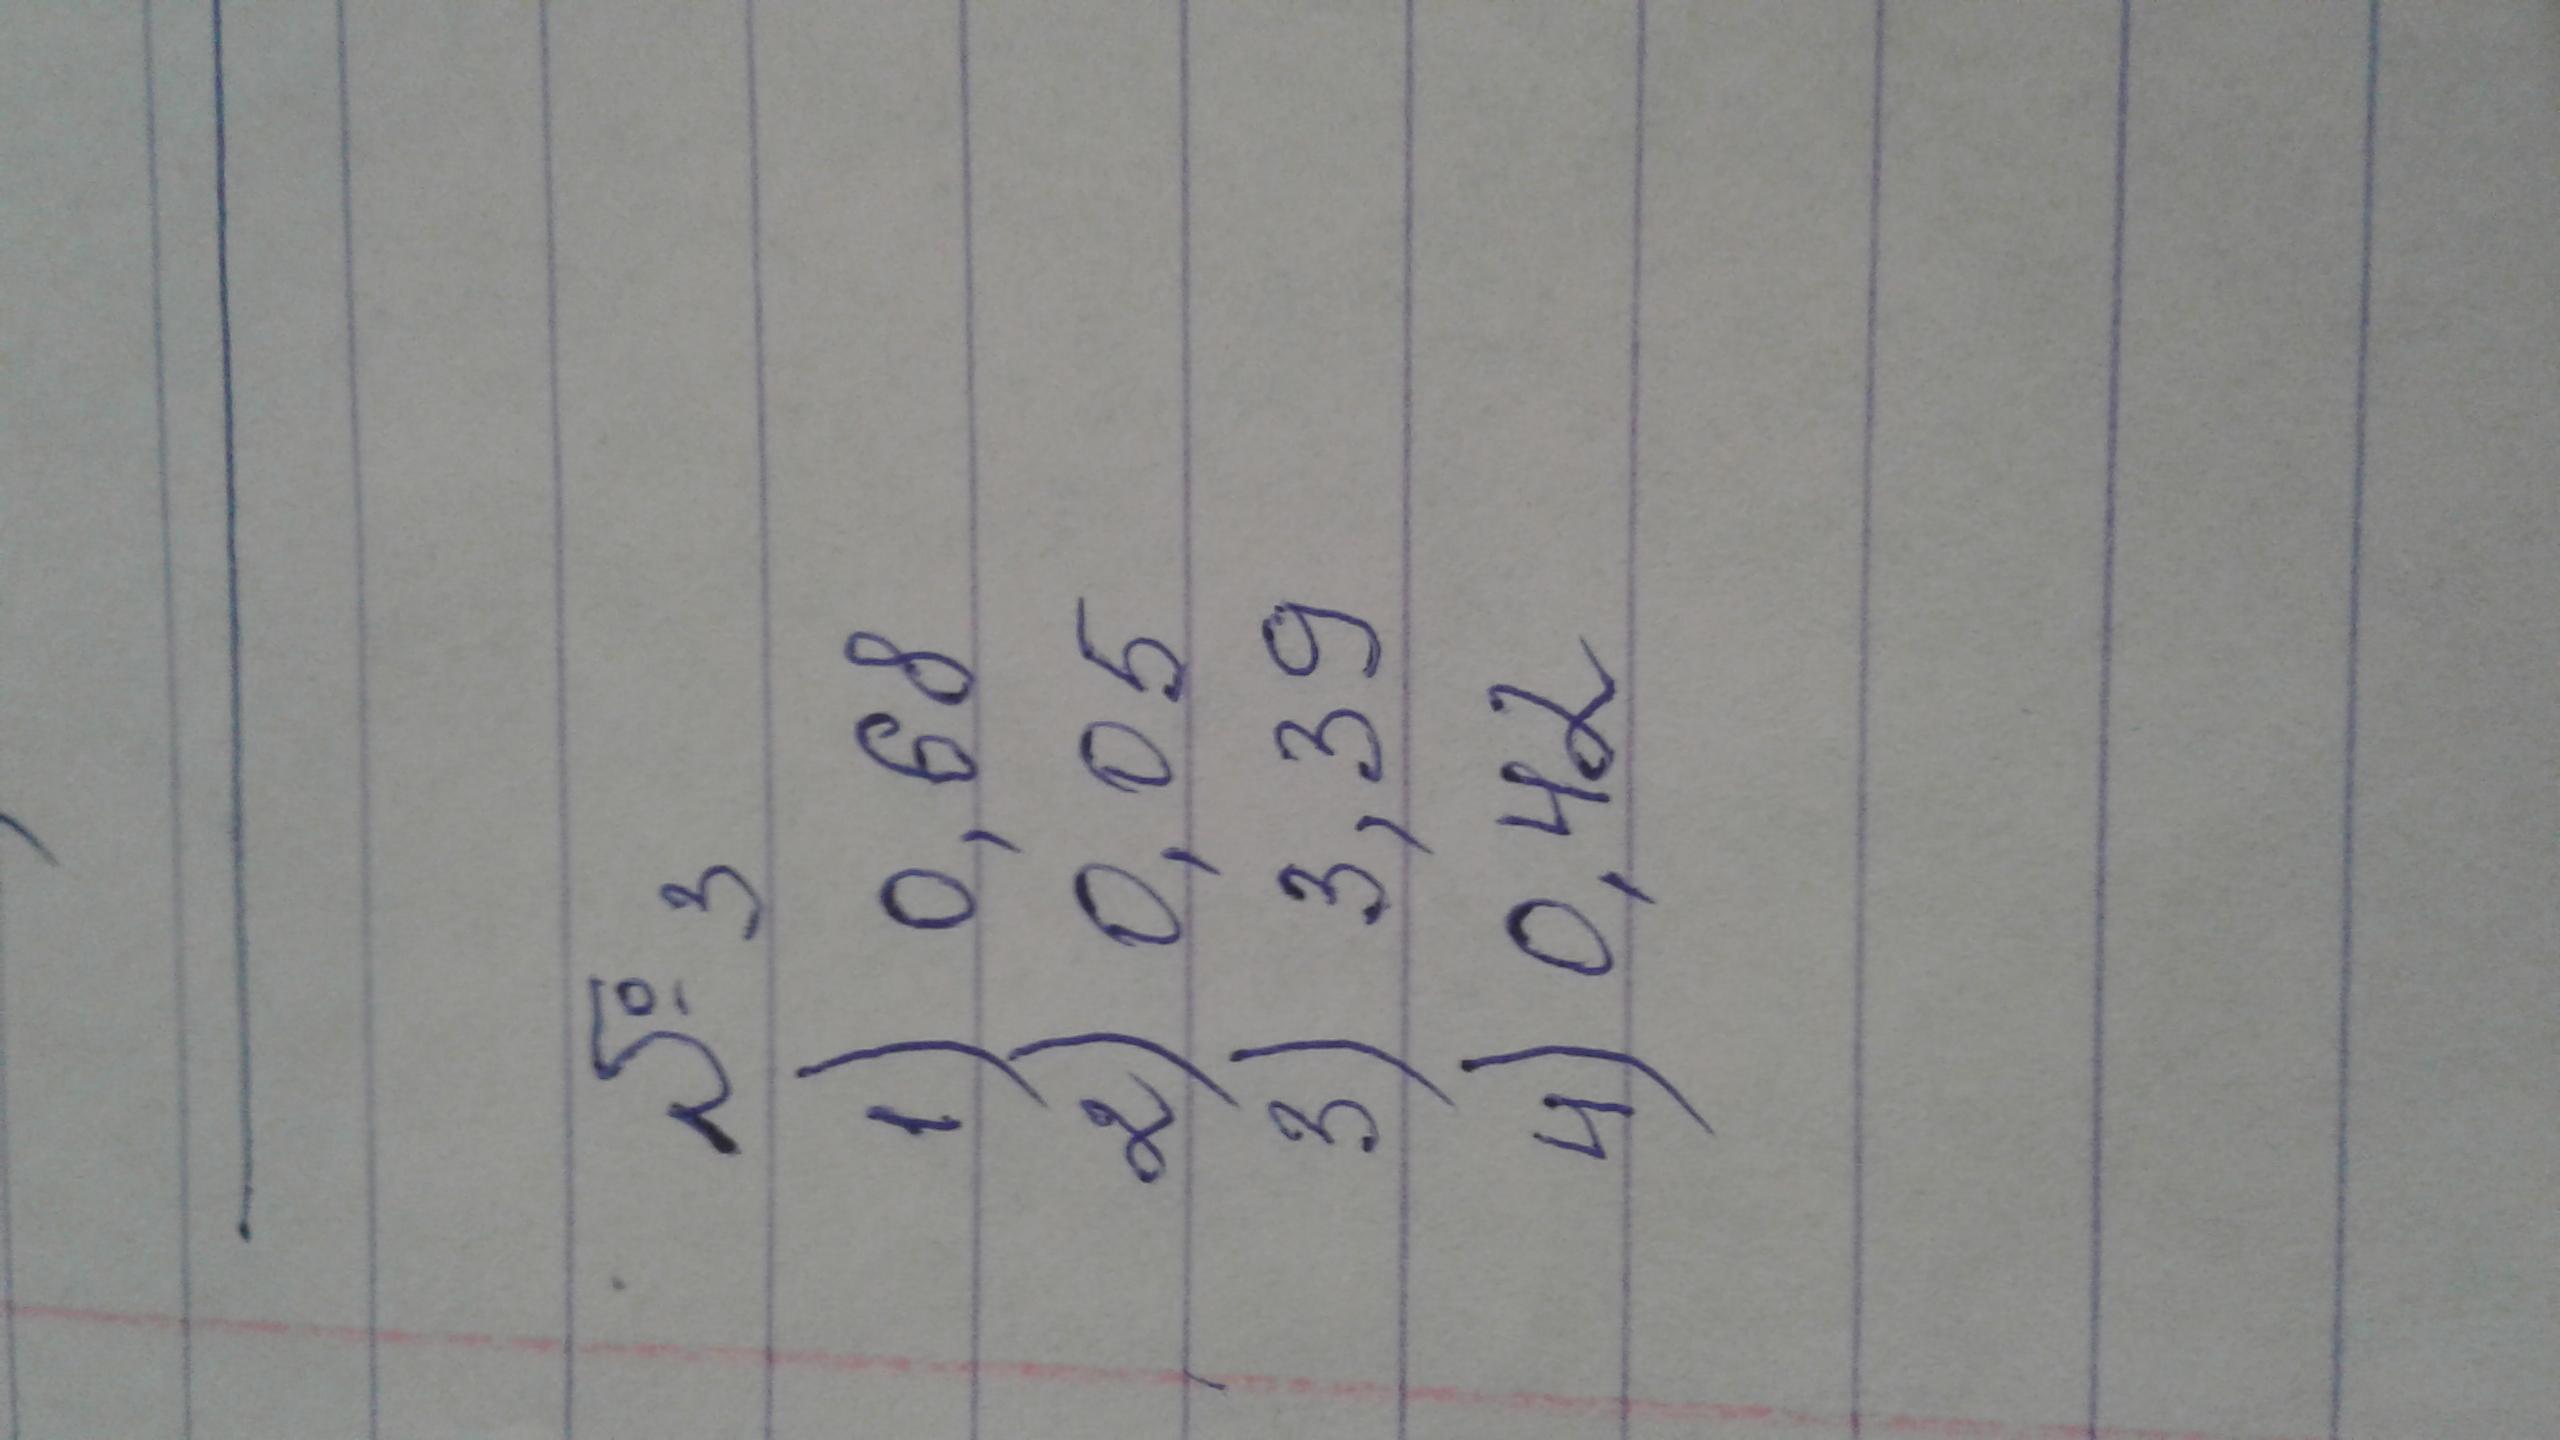 № 3
1) 0,68
2) 0,05
3) 3,39
4) 0,42